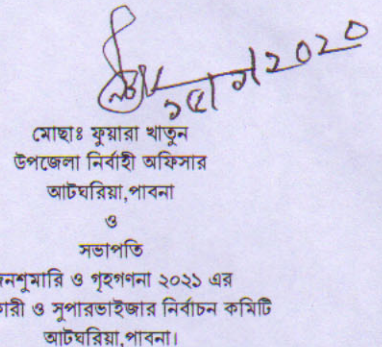 ১৫/৭/২০২০
মোছাঃ ফুয়ারা খাতুন
উপজেলা নির্বাহী অফিসার
আটঘরিয়া,পাবনা
ও
সভাপতি
নশুমারি ও গৃহগণনা ২০২১ এর
কারী ও সুপারভাইজার নির্বাচন কমিটি
আটঘরিয়া,পাবনা।